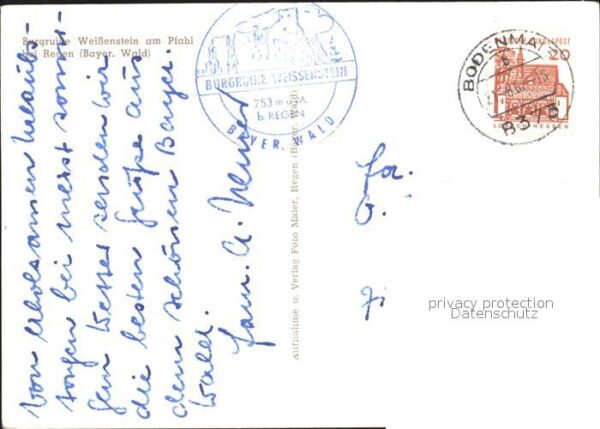 Burgruine Weißenstein am Pfahl
bei Regen (Bayer. Wald)
Von erholsamen Urlaubs-
tagen bei meist sonni-
gem Wetter senden wir
die besten Grüße aus
dem schönen Bayer.
Wald.
Fam. A.
BURGRUINE WEISSENSTEIN
753 m ü.M.
b. REGEN
BAYER. WALD
Aufnahme u. Verlag Foto Maier, Regen (Bayer. Wald)
Fa.
DEUTSCHE BUNDESPOST
20
LORSCH HESSEN
BODENMAIS
8373
privacy protection
Datenschutz